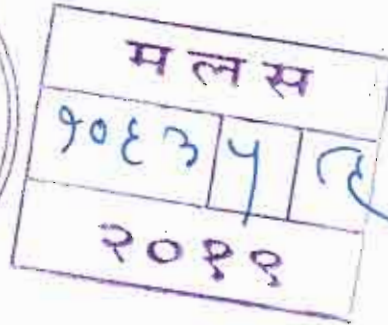 म ल स
१०६३ ५
२०१९